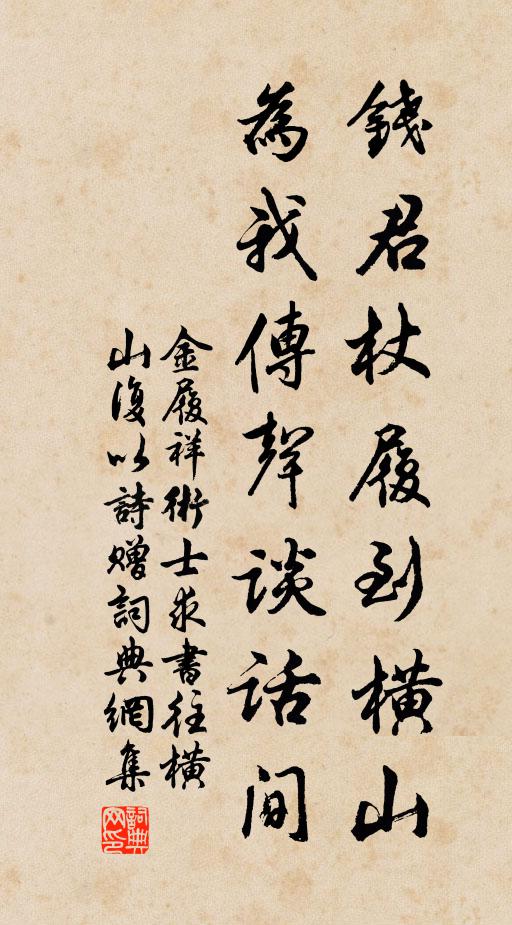 錢君杖履到橫山
為我傳聲談話間
金履祥術士求書往橫
山復以詩贈詞典網集
詞典网印